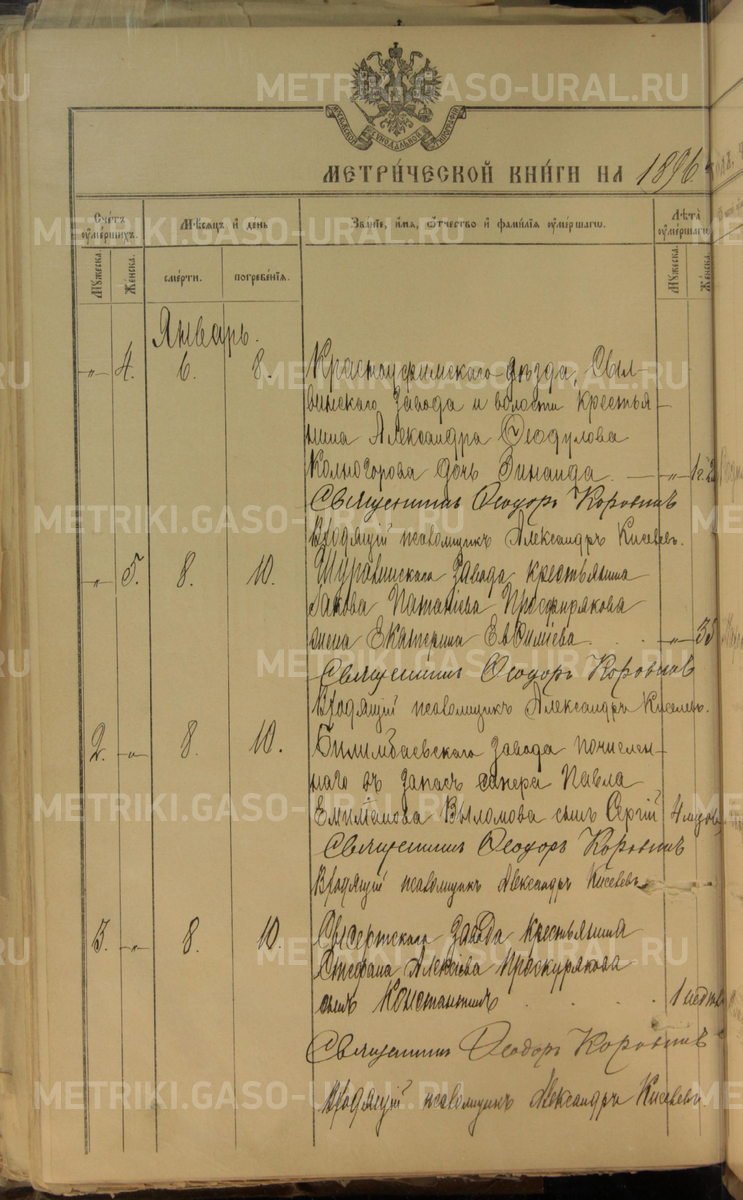 METRIKI.GASO-URAL.RU
МЕТРИ́ЧЕСКОЙ КНИ́ГИ НА 1896
Сче́тъ оуме́ршихъ.
Мѣ́сяцъ и де́нь
Зва́нїе, и́мя, ѻ́тчество и фами́лїя оуме́ршагѡ.
Лѣ́та оуме́ршагѡ.
Му́жеска.
Же́нска.
сме́рти.
погребе́нїя.
Му́жеска.
Же́нска.
Январь.
„ 4. 6. 8. Красноуфимскаго уѣзда, Сыл-
винскаго завода и волости крестья-
нина Александра Ѳеодулова
Колногорова дочь Зинаида. — „ 1 г.
Священникъ Ѳеодоръ Коровинъ
псаломщикъ Александръ Киселевъ.
„ 5. 8. 10. завода крестьянина
Якова
жена Екатерина Евѳиміева . . „ 35
Священникъ Ѳеодоръ Коровинъ
псаломщикъ Александръ Киселевъ.
2. „ 8. 10. Билимбаевскаго завода почислен-
наго въ запасъ сапера Павла
Емиліанова Выломова сынъ Сергій 4
Священникъ Ѳеодоръ Коровинъ
псаломщикъ Александръ Киселевъ
3. „ 8. 10. Сысертскаго завода крестьянина
Стефана Алексіева Проскурякова
сынъ Константинъ . . . . 1
Священникъ Ѳеодоръ Коровинъ
псаломщикъ Александръ Киселевъ.